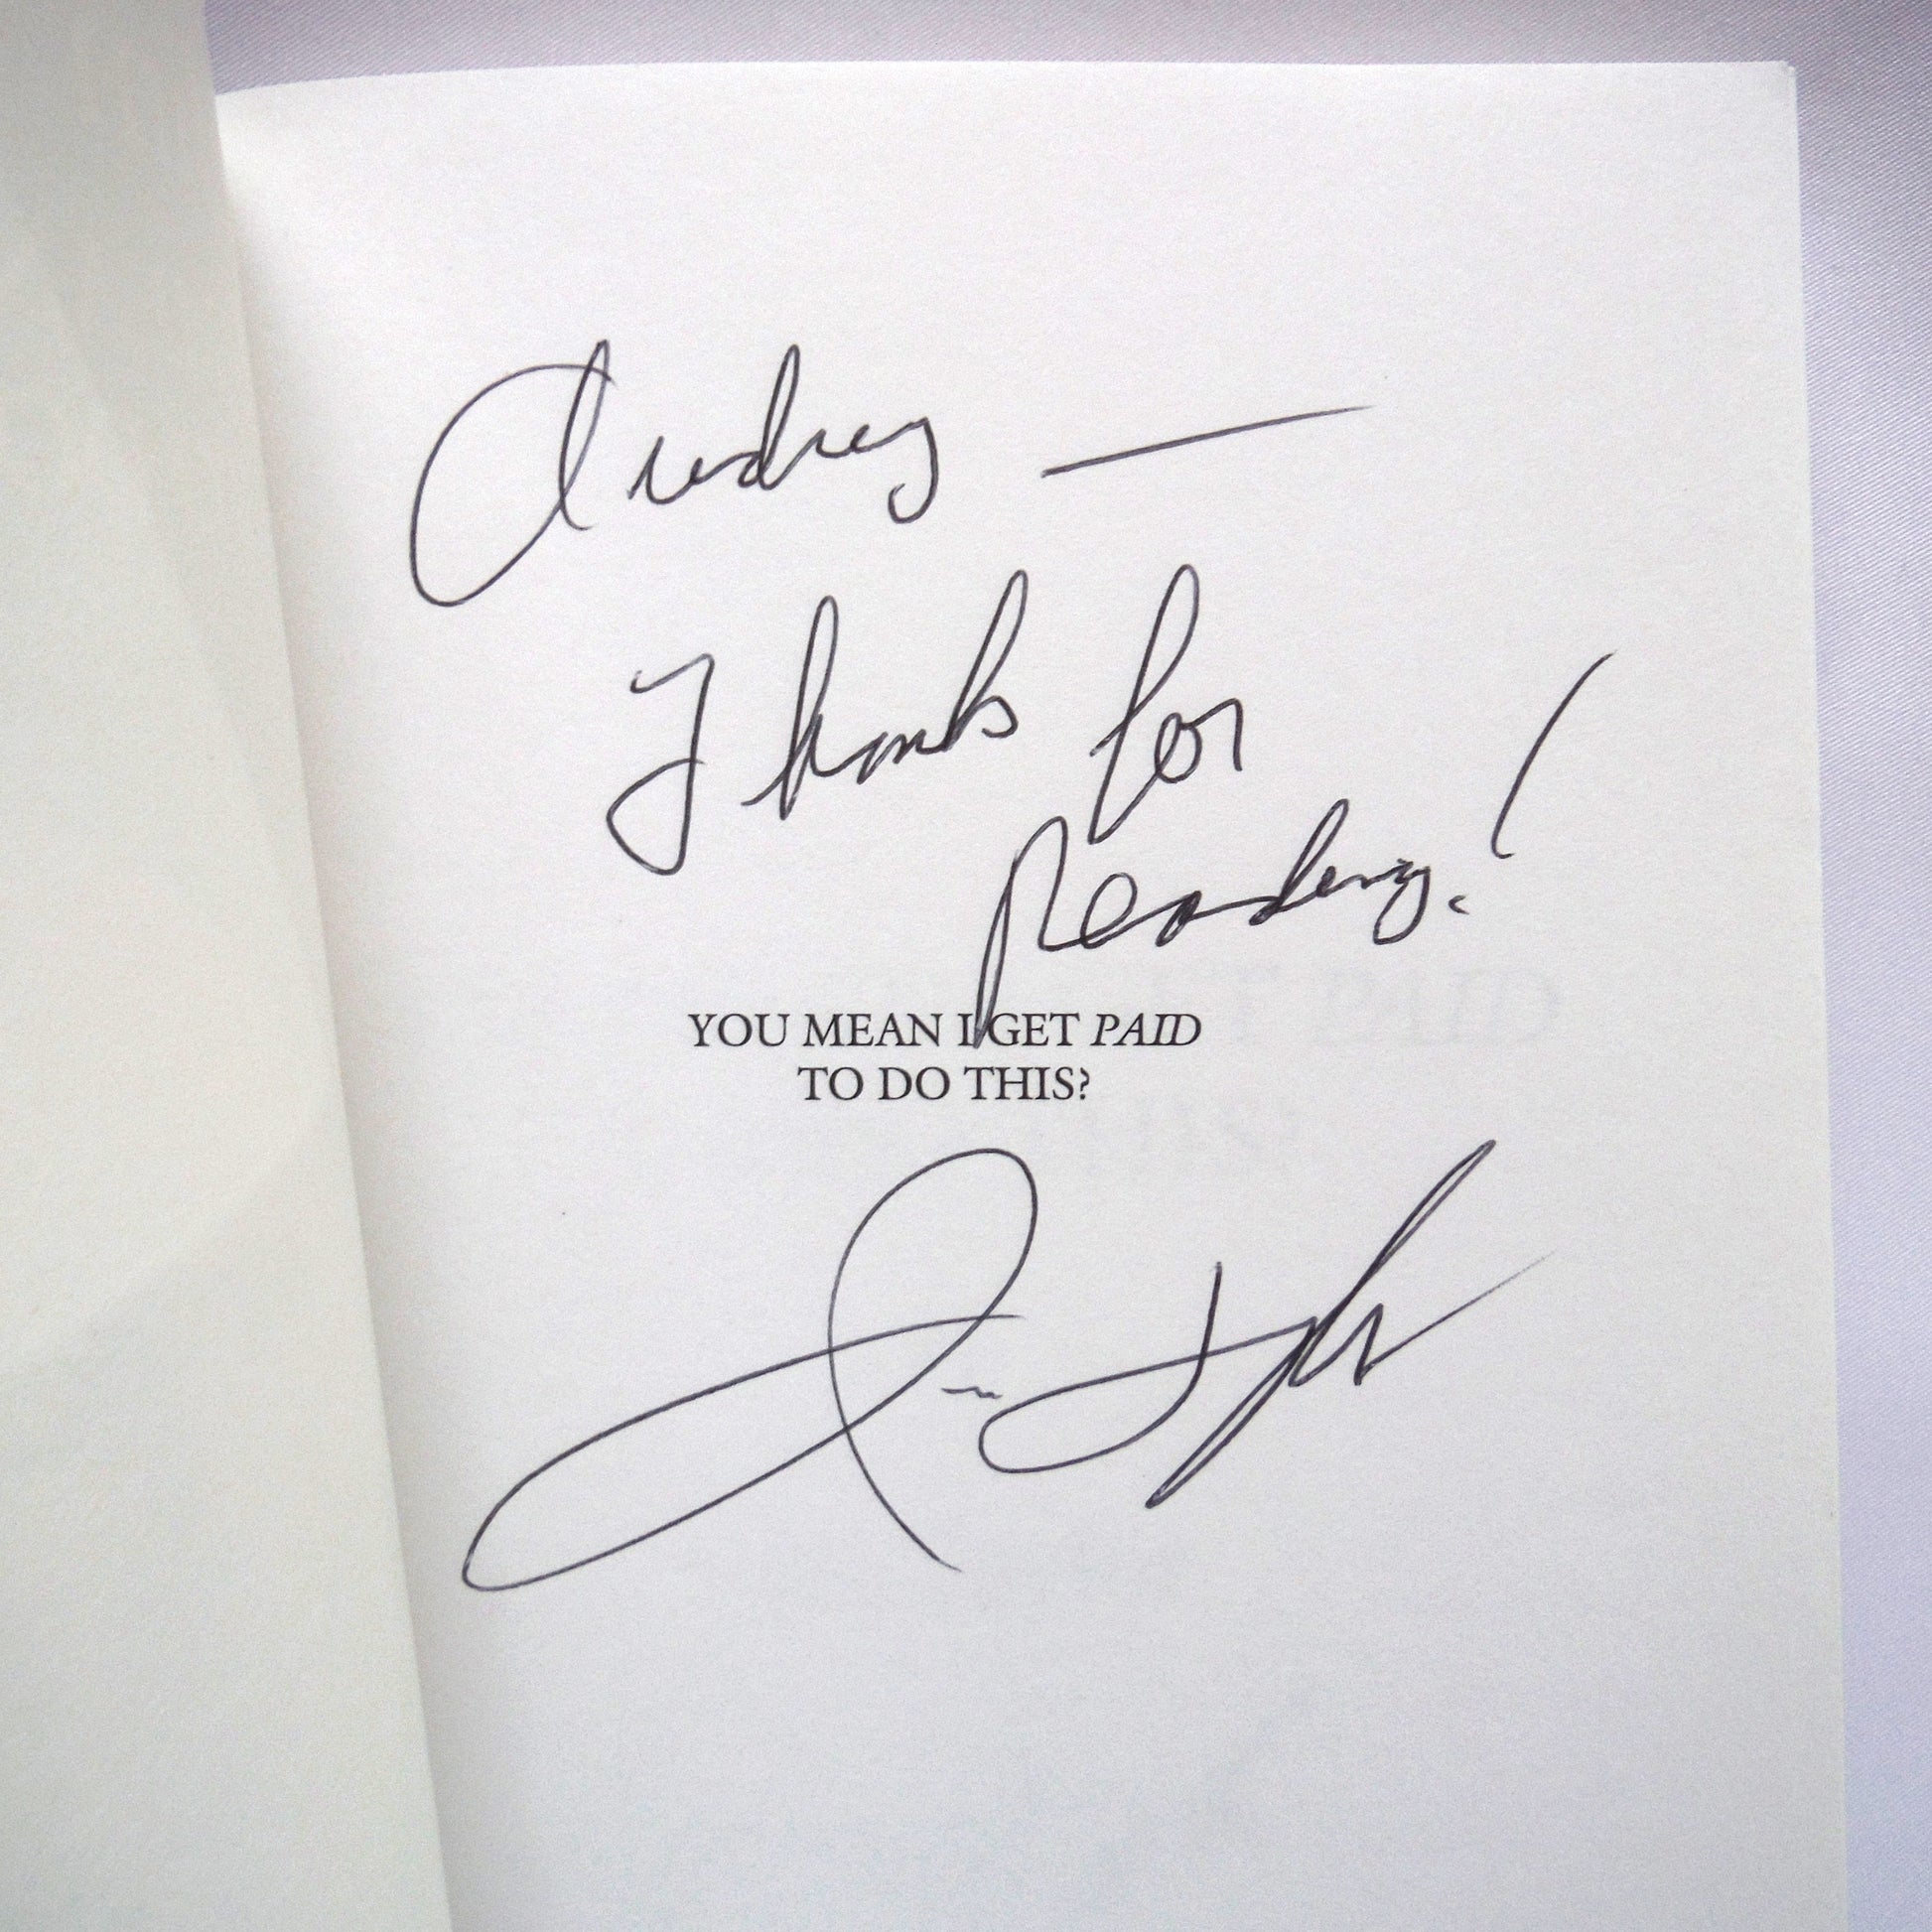 Audrey —
Thanks for
Reading!
YOU MEAN I GET PAID
TO DO THIS?